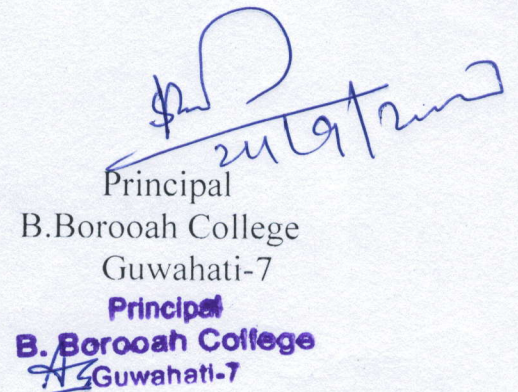 Principal
B.Borooah College
Guwahati-7
Principal
B. Borooah College
Guwahati-7